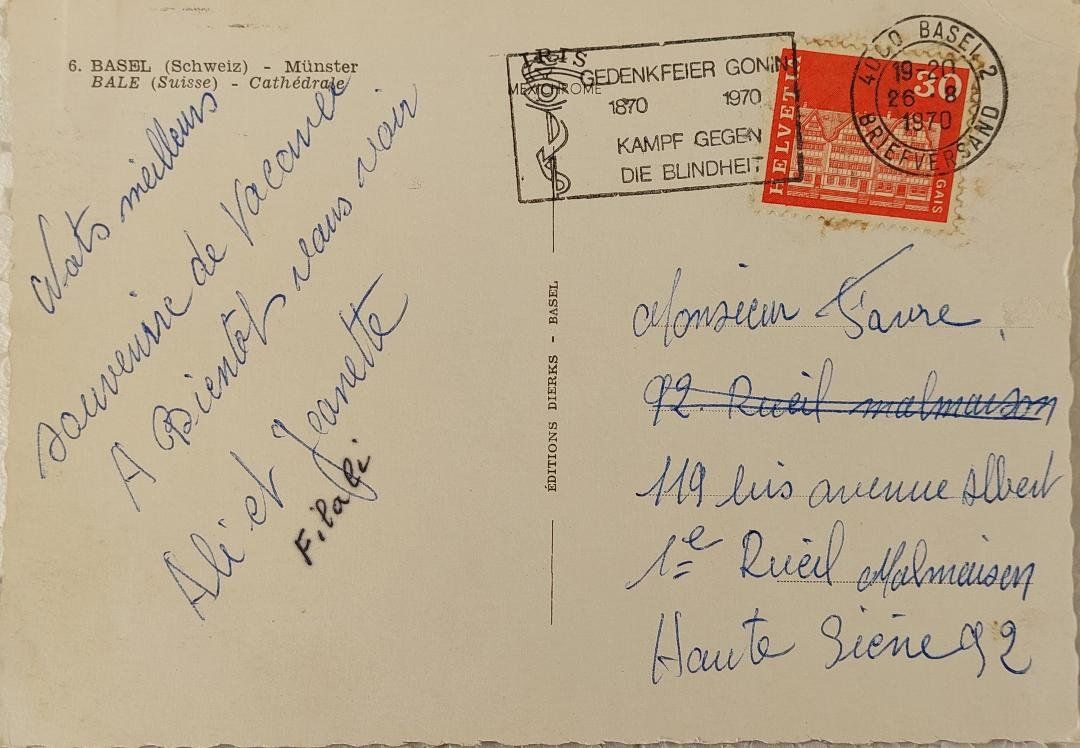 6. BASEL (Schweiz) - Münster
BALE (Suisse) - Cathédrale
MEXICHROME
IRIS
GEDENKFEIER GONIN
1870 1970
KAMPF GEGEN
DIE BLINDHEIT
HELVETIA
30
GAIS
BASEL 2
19-20
26 8
1970
BRIEFVERSAND
meilleurs
souvenire de Vacance
A Bientot vous voir
Ali et Jeanette
Filali
ÉDITIONS DIERKS - BASEL
Monsieur Favre
92 Rueil malmaison
119 bis avenue Albert
1e Rueil Malmaison
Haute Siene 92